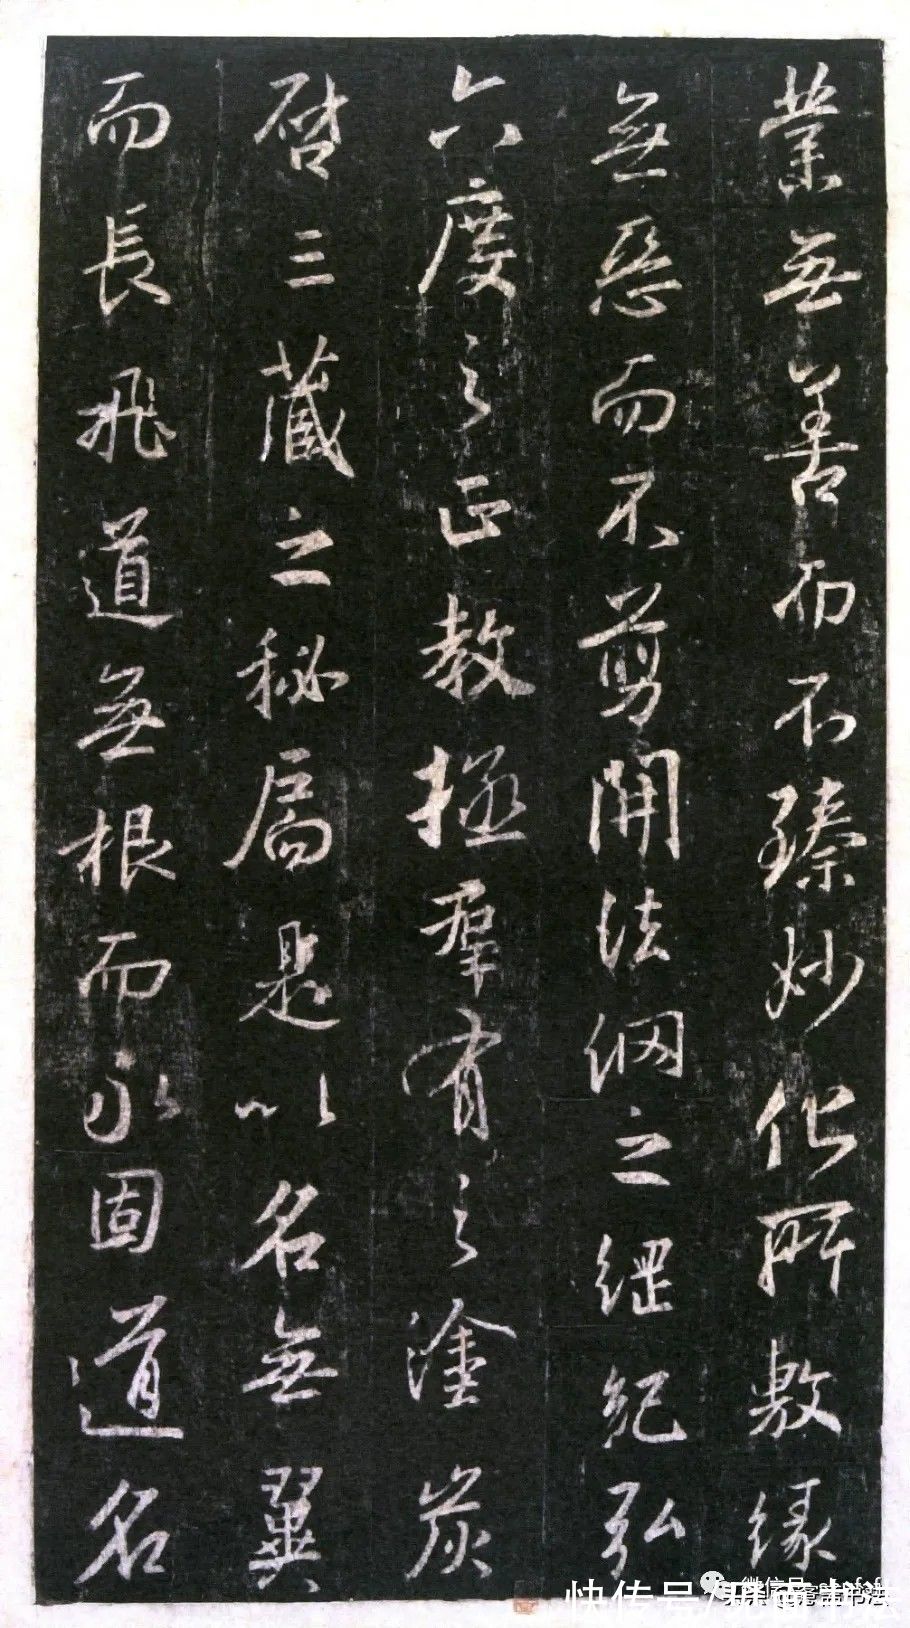 業無善而不臻妙化所敷緣
無惡而不剪開法網之綱紀弘
六度之正教拯群有之塗炭
啓三藏之秘扃是以名無翼
而長飛道無根而永固道名
快传号/